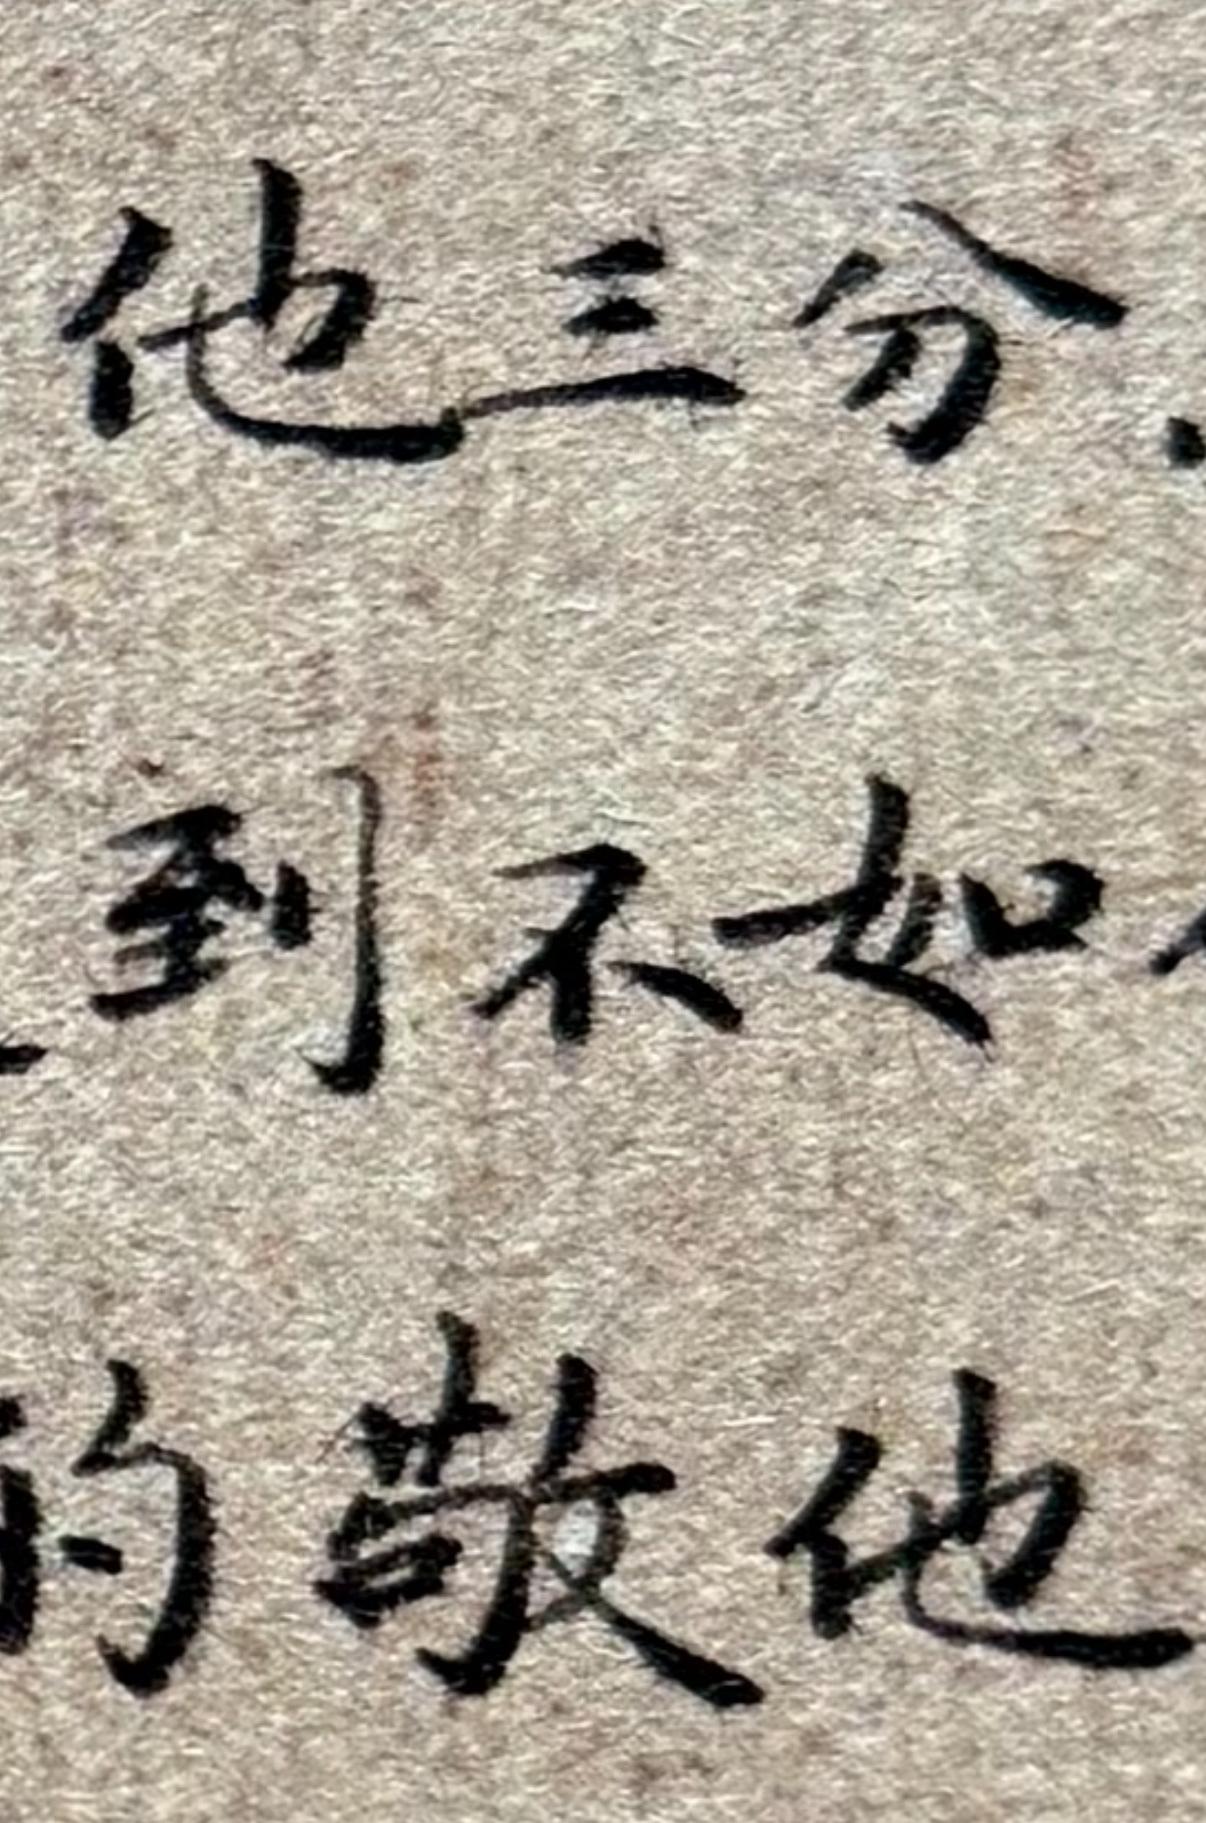 他三分.
到不如
的敬他